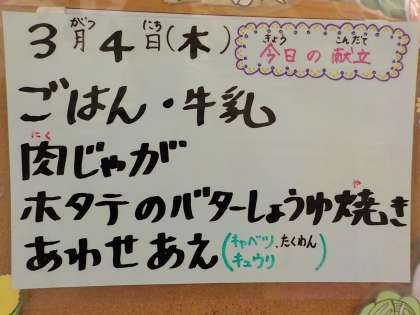 3月4日(木)
がつ にち
きょう こんだて
今日の献立
ごはん・牛乳
にく
肉じゃが
や
ホタテのバターしょうゆ焼き
あわせあえ(キャベツ、たくわん
キュウリ)